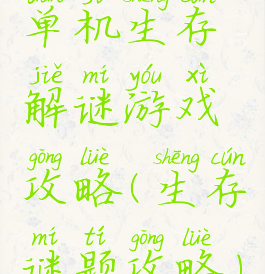 dān jī shēng cún
单机生存
jiě mí yóu xì
解谜游戏
gōng lüè shēng cún
攻略(生存
mí tí gōng lüè
谜题攻略)